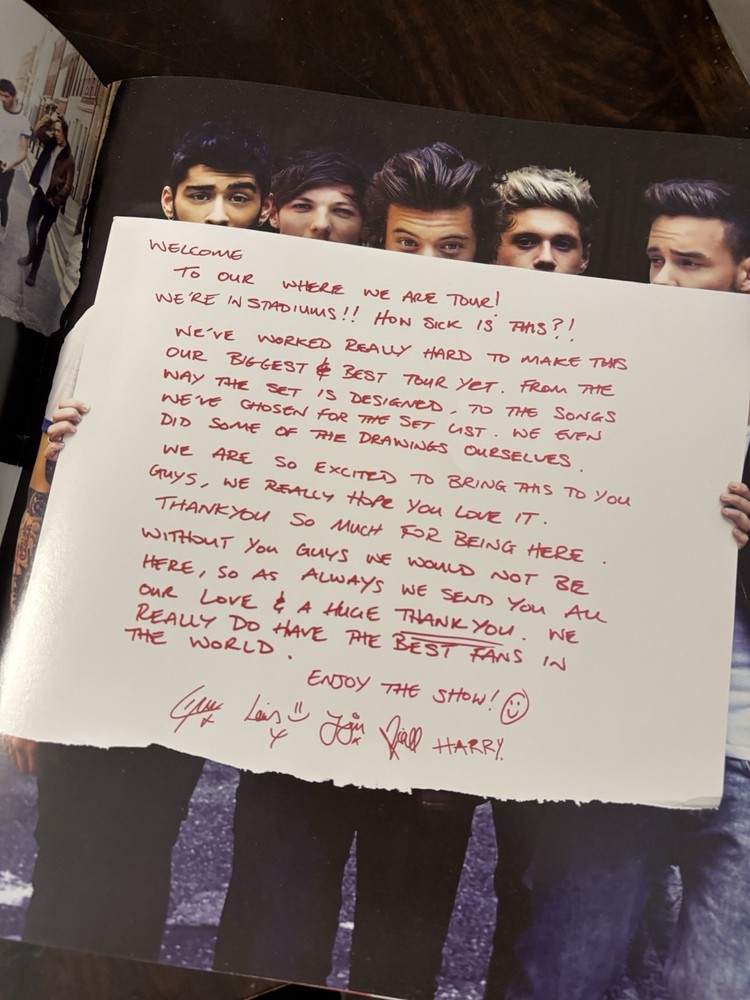 WELCOME
TO OUR WHERE WE ARE TOUR!
WE'RE IN STADIUMS!! HOW SICK IS THIS?!
WE'VE WORKED REALLY HARD TO MAKE THIS
OUR BIGGEST & BEST TOUR YET. FROM THE
WAY THE SET IS DESIGNED, TO THE SONGS
WE'VE CHOSEN FOR THE SET LIST. WE EVEN
DID SOME OF THE DRAWINGS OURSELVES.
WE ARE SO EXCITED TO BRING THIS TO YOU
GUYS, WE REALLY HOPE YOU LOVE IT.
THANKYOU SO MUCH FOR BEING HERE.
WITHOUT YOU GUYS WE WOULD NOT BE
HERE, SO AS ALWAYS WE SEND YOU ALL
OUR LOVE & A HUGE THANKYOU. WE
REALLY DO HAVE THE BEST FANS IN
THE WORLD.
ENJOY THE SHOW!
Niall HARRY.